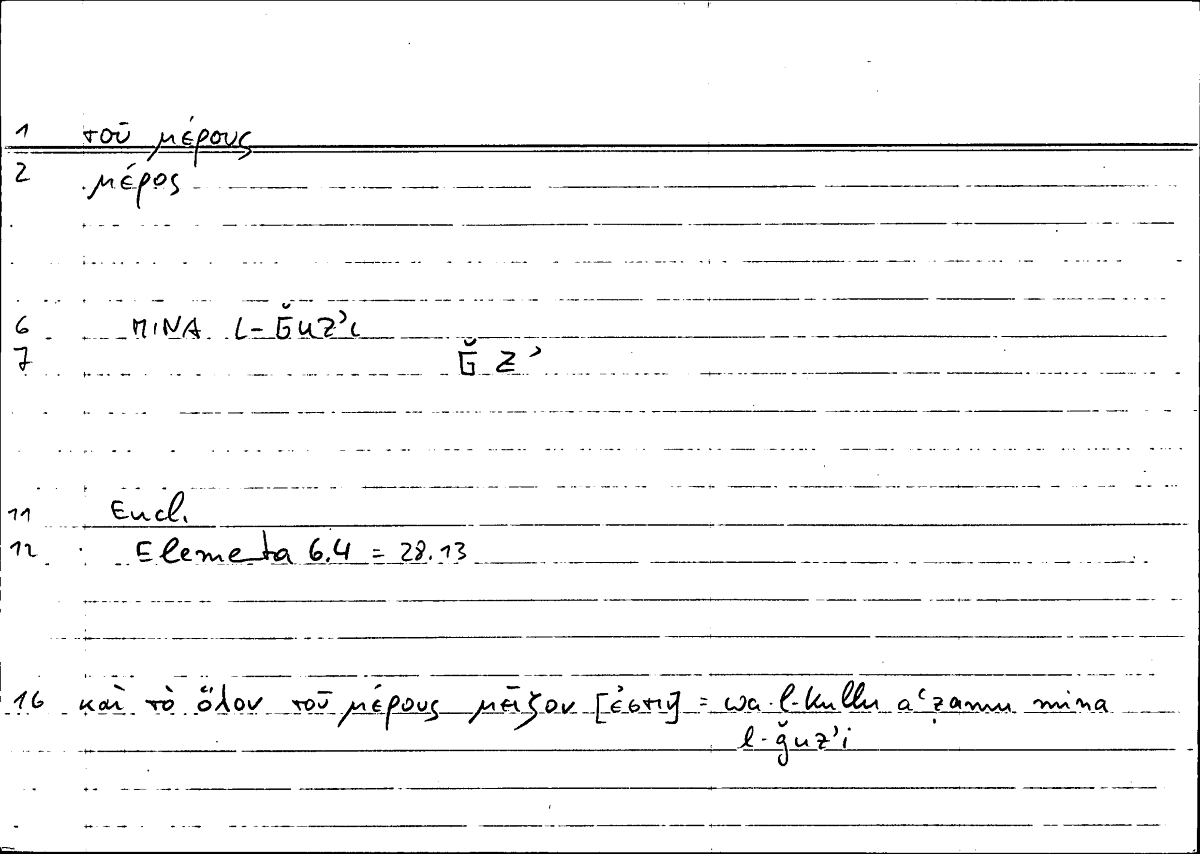 1 τοῦ μέρους
2 μέρος
6 MINA L-ǦUZʾI
7 Ǧ Z ʾ
11 Eucl.
12 Elementa 6.4 = 28.13
16 καὶ τὸ ὅλον τοῦ μέρους μεῖζον [ἐστιν] = wa-l-kullu aʿẓamu mina
l-ǧuzʾi